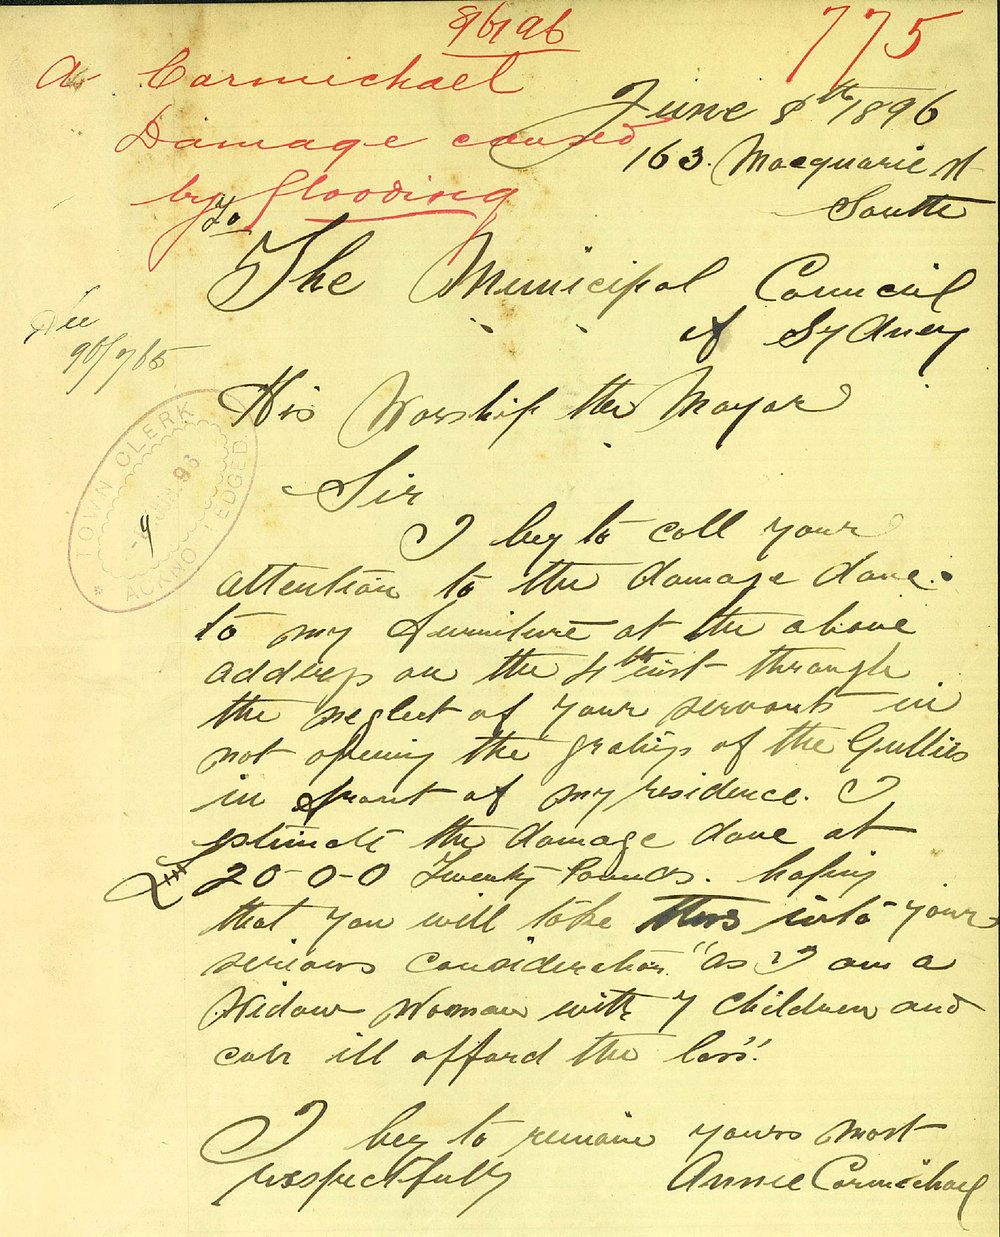 8/6/96
775
A Carmichael
Damage caused
by flooding
June 8th 1896
163. Macquarie St
South
To
The Municipal Council
of Sydney
See
96/765
His Worship the Mayor
TOWN CLERK
9 JUN. 96
ACKNOWLEDGED
Sir
I beg to call your
attention to the damage done.
to my furniture at the above
address on the 4th inst through
the neglect of your servants in
not opening the gratings of the Gullies
in front of my residence. I
estimate the damage done at
£20-0-0 Twenty Pounds. hoping
that you will take this into your
serious consideration "as I am a
Widow Woman with 7 children and
can ill afford the loss".
I beg to remain yours most
respectfully Annie Carmichael